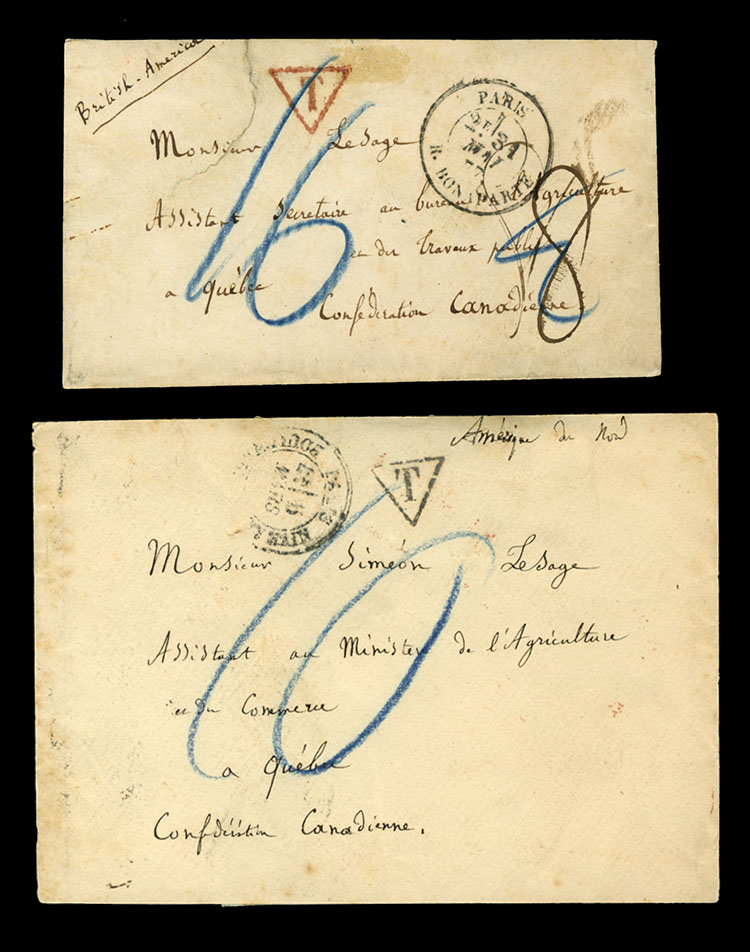 British-America
T
16
Monsieur Lesage
PARIS
2E/ 31
MAI
R. BONAPARTE
Assistant Secretaire au bureau Agriculture
et des Travaux publics
8
a Québec
Confédération Canadienne.
Amérique du Nord
T
10
Monsieur Siméon Lesage
Assistant au Ministere de l'Agriculture
et du Commerce
a Québec
Confédération Canadienne.